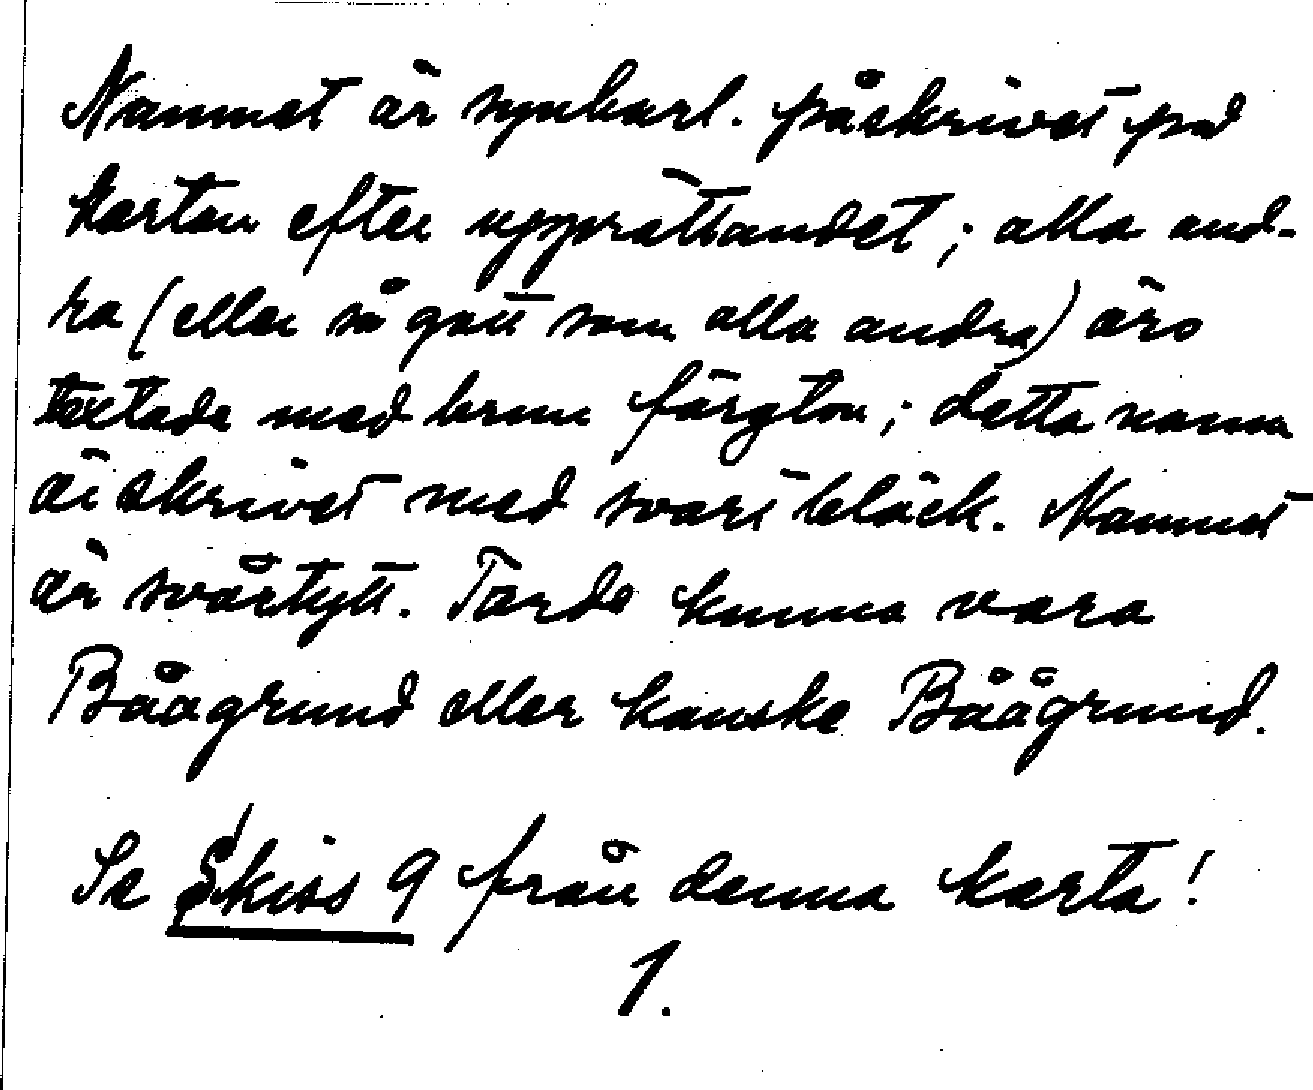 Namnet är synbarl. påskrivet på
kartan efter upprättandet; alla and-
ra (eller så gott som alla andra) äro
textade med brun färgton; detta namn
är skrivet med svart bläck. Namnet
är svårtytt. Torde kunna vara
Båagrund eller kanske Bäågrund.
Se Skiss 9 från denna karta!
1.